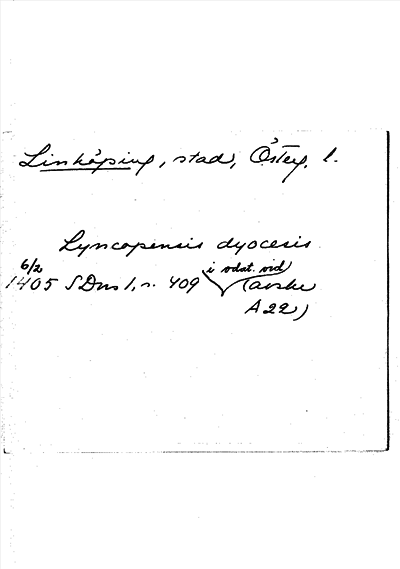 Linköping, stad, Österg. l.
Lyncopensis dyocesis
6/2 i odat. vid
1405 SDns 1, s. 409 (avskr
A 22)